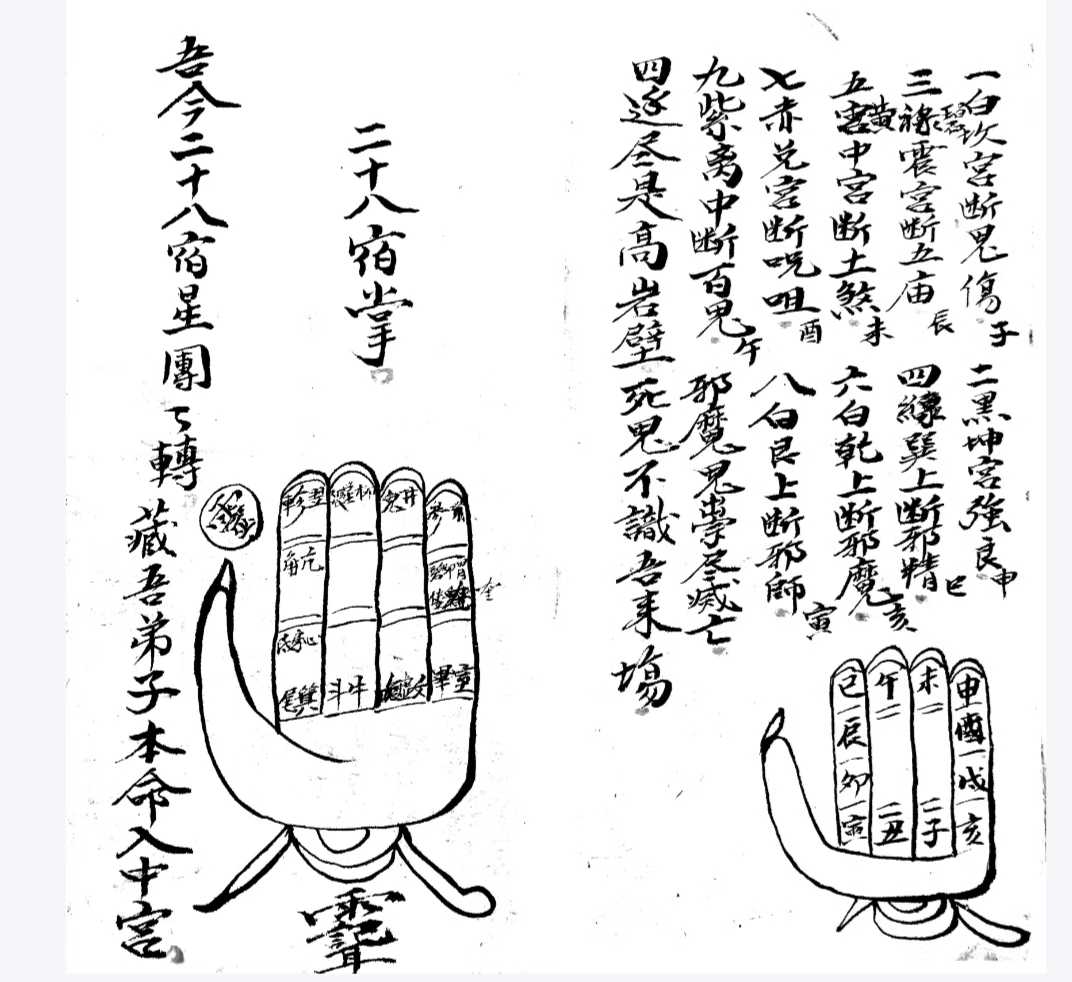 一白坎宮断鬼傷 子
二黒坤宮強良 申
三碧祿震宮断五庙 辰
四緑巽上断邪精 巳
五黄中宮断土煞 未
六白乾上断邪魔 亥
七赤兑宮断呪咀 酉
八白艮上断邪師 寅
九紫离中断百鬼 午
邪魔鬼祟尽滅亡
四边尽是高岩壁
死鬼不識吾来場
巳 午 未 申
辰 酉
卯 戌
寅 丑 子 亥
二十八宿掌
軫 翌 壁 鬼 井 参
角 亢
氐 心
尾 箕 斗 牛 畢
吾今二十八宿星團々轉
藏吾弟子本命入中宮